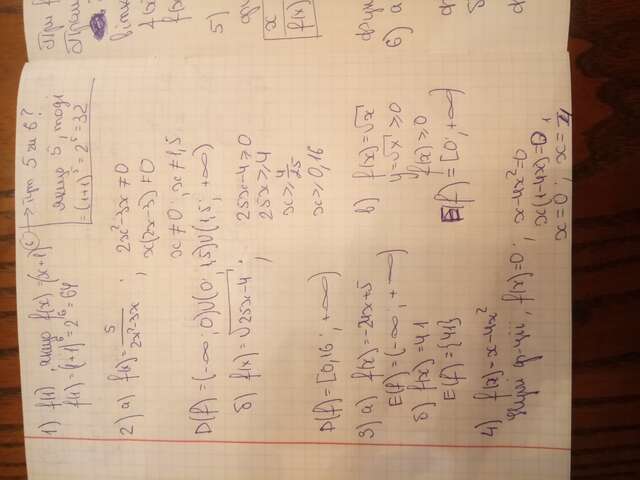 1) f(1), якщо f(x) = (x+1)⁶ → тут 5 чи 6?
f(1) = (1+1)⁶ = 2⁶ = 64
якщо 5, тоді
= (1+1)⁵ = 2⁵ = 32
2) а) f(x) = 5/(2x²-3x) ; 2x²-3x ≠ 0
x(2x-3) ≠ 0
x ≠ 0, x ≠ 1,5
D(f) = (-∞; 0)∪(0; 1,5)∪(1,5; +∞)
б) f(x) = √(25x-4) ; 25x-4 ≥ 0
25x ≥ 4
x ≥ 4/25
x ≥ 0,16
D(f) = [0,16; +∞)
3) а) f(x) = -21x+5
E(f) = (-∞; +∞)
б) f(x) = 41
E(f) = {41}
в) f(x) = √x
y = √x ≥ 0
f(x) ≥ 0
E(f) = [0; +∞)
4) f(x) = x-4x²
ф-ції, f(x)=0, x-4x²=0
x(1-4x)=0
x=0; x=1/4
5)
6) а
x
f(x)
При